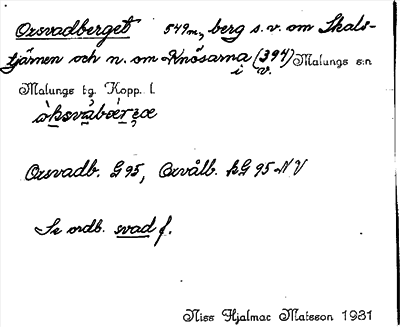 Oxsvadberget 549 m., berg s.v. om Skals-
tjärnen och n. om Knösarna (394) Malungs s:n
i v.
Malungs tg. Kopp. l.
Oxsvadb. G 95, Oxvålb. kG 95 NV
Se ordb. svad f.
Niss Hjalmar Matsson 1931